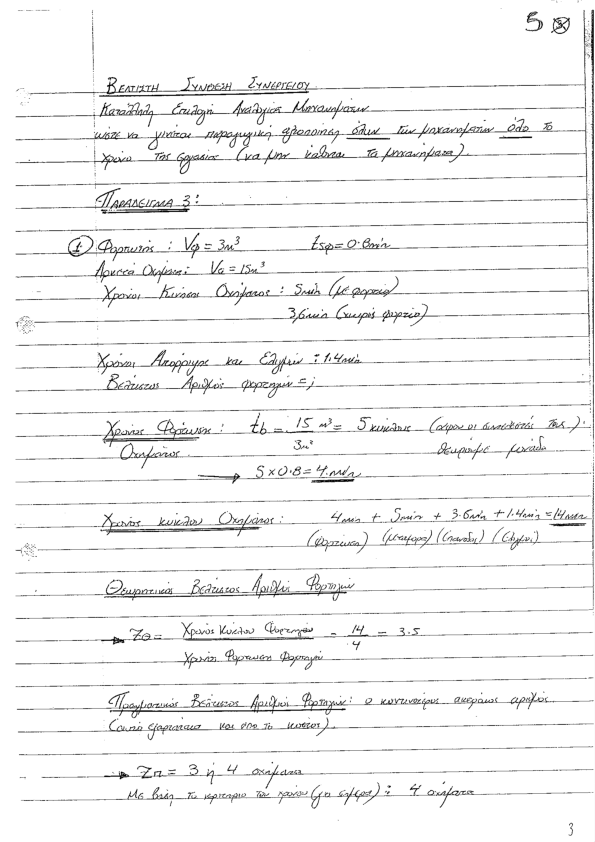 5 3
ΒΕΛΤΙΣΤΗ ΣΥΝΘΕΣΗ ΣΥΝΕΡΓΕΙΟΥ
Κατάλληλη Επιλογή Αναλογίας Μηχανημάτων
ώστε να γίνεται παραγωγική αξιοποίηση όλων των μηχανημάτων όλο το
χρόνο της εργασίας (να μην κάθονται τα μηχανήματα).
ΠΑΡΑΔΕΙΓΜΑ 3:
1 Φορτωτής : Vφ = 3m³ tsφ = 0.8min
Αρκετά Οχήματα: Vα = 15m³
Χρόνοι Κίνησης Οχήματος : 5min (με φορτίο)
3,6min (χωρίς φορτίο)
Χρόνοι Απόρριψης και Ελιγμών : 1.4min
Βέλτιστος Αριθμός φορτηγών = ;
Χρόνος Φόρτωσης : tb = 15 m³ / 3m³ = 5 κύκλους (αφού οι συντελεστές τους).
Οχήματος θεωρούμε μονάδα
→ 5 x 0.8 = 4 min
Χρόνος κύκλου Οχήματος : 4min + 5min + 3.6min + 1.4min = 14min
(φόρτωση) (μεταφορά) (επάνοδος) (ελιγμοί)
Θεωρητικός Βέλτιστος Αριθμός Φορτηγών
→ Zθ = Χρόνος Κύκλου Φορτηγού / Χρόνος Φόρτωσης Φορτηγού = 14 / 4 = 3.5
Πραγματικός Βέλτιστος Αριθμός Φορτηγών : ο κοντινότερος ακέραιος αριθμός
(αυτό εξαρτάται και από το κόστος).
→ Zπ = 3 ή 4 οχήματα
Με βάση το κριτήριο του χρόνου : 4 οχήματα
3